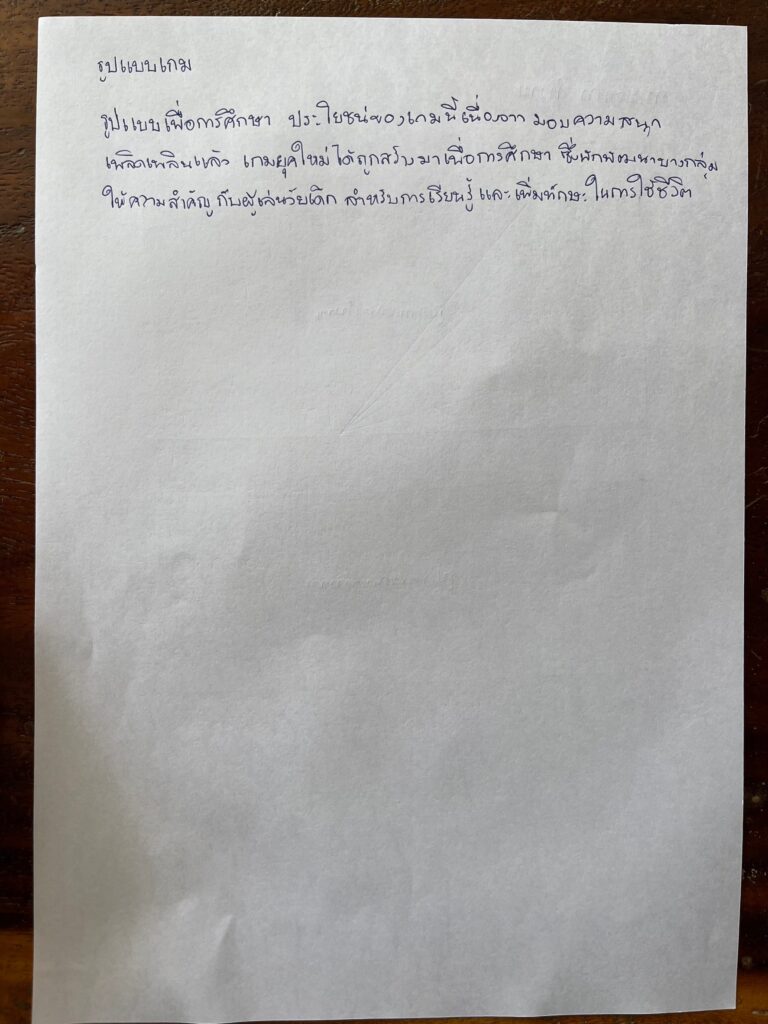 รูปแบบเกม
รูปแบบเพื่อการศึกษา ประโยชน์ของเกมนี้เนื่องจาก มอบความสนุก
เพลิดเพลินแล้ว เกมยุคใหม่ได้ถูกสร้างมาเพื่อการศึกษา ซึ่งนักพัฒนาบางกลุ่ม
ให้ความสำคัญกับผู้เล่นวัยเด็ก สำหรับการเรียนรู้และเพิ่มทักษะในการใช้ชีวิต